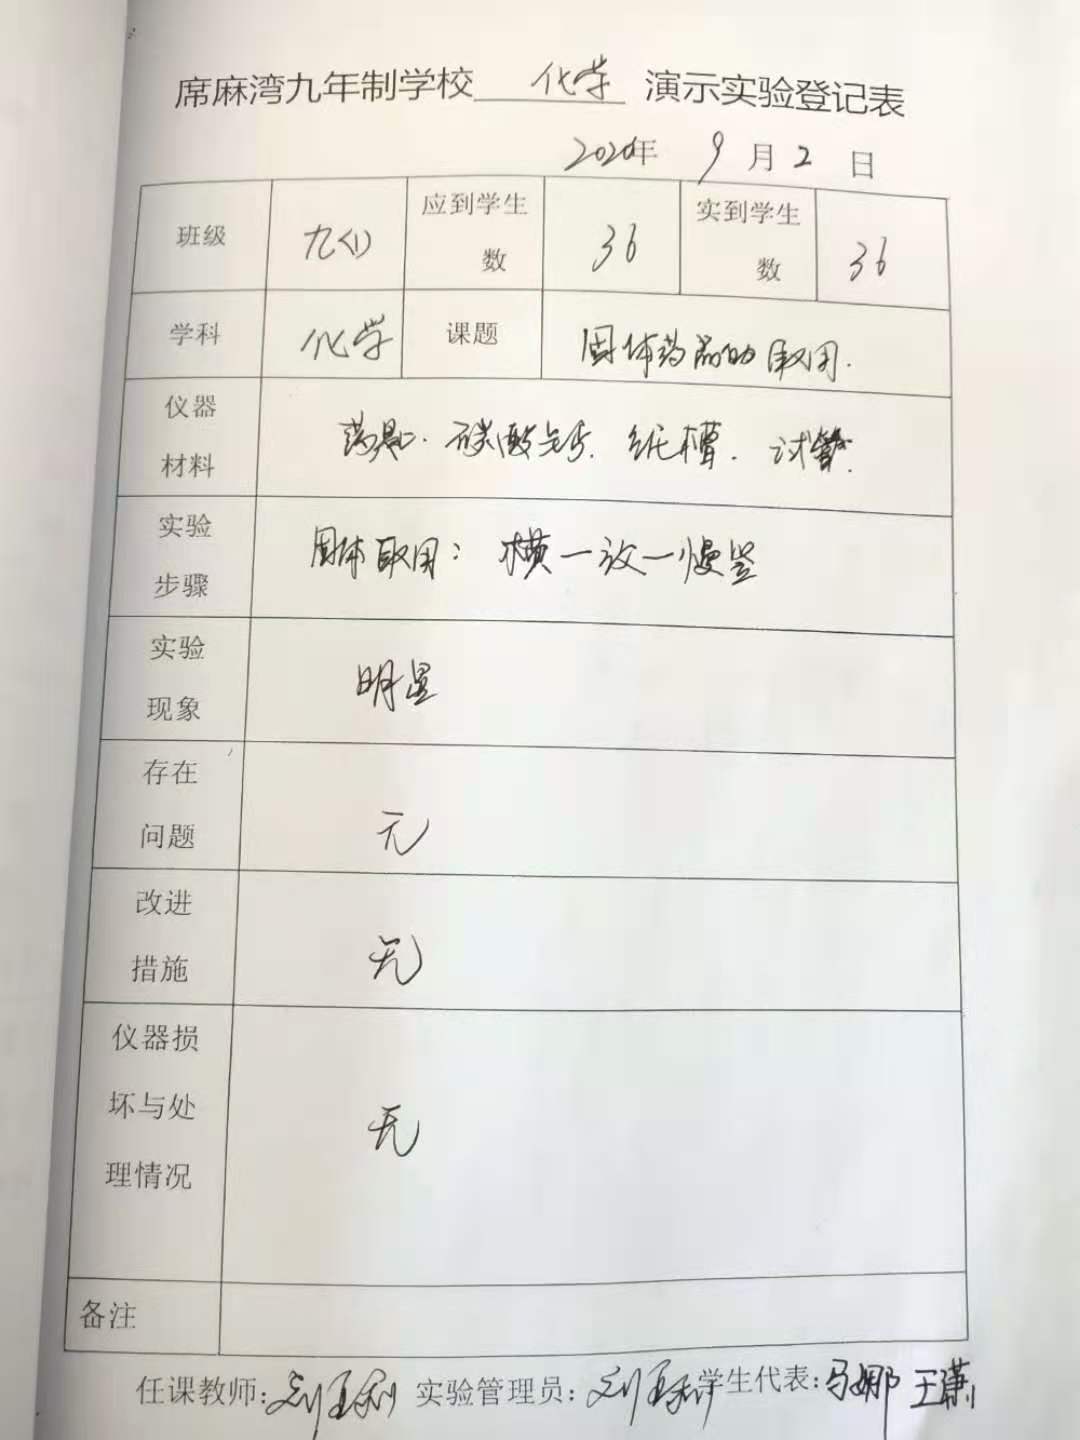 席麻湾九年制学校 化学 演示实验登记表
2020年 9 月 2 日
班级 九(1) 应到学生数 36 实到学生数 36
学科 化学 课题 固体药品的取用.
仪器材料 药匙. 碳酸钙. 纸槽. 试管.
实验步骤 固体取用: 横一放一慢竖
实验现象 明显
存在问题 无
改进措施 无
仪器损坏与处理情况 无
备注
任课教师: 实验管理员: 学生代表: 马娜 王潇